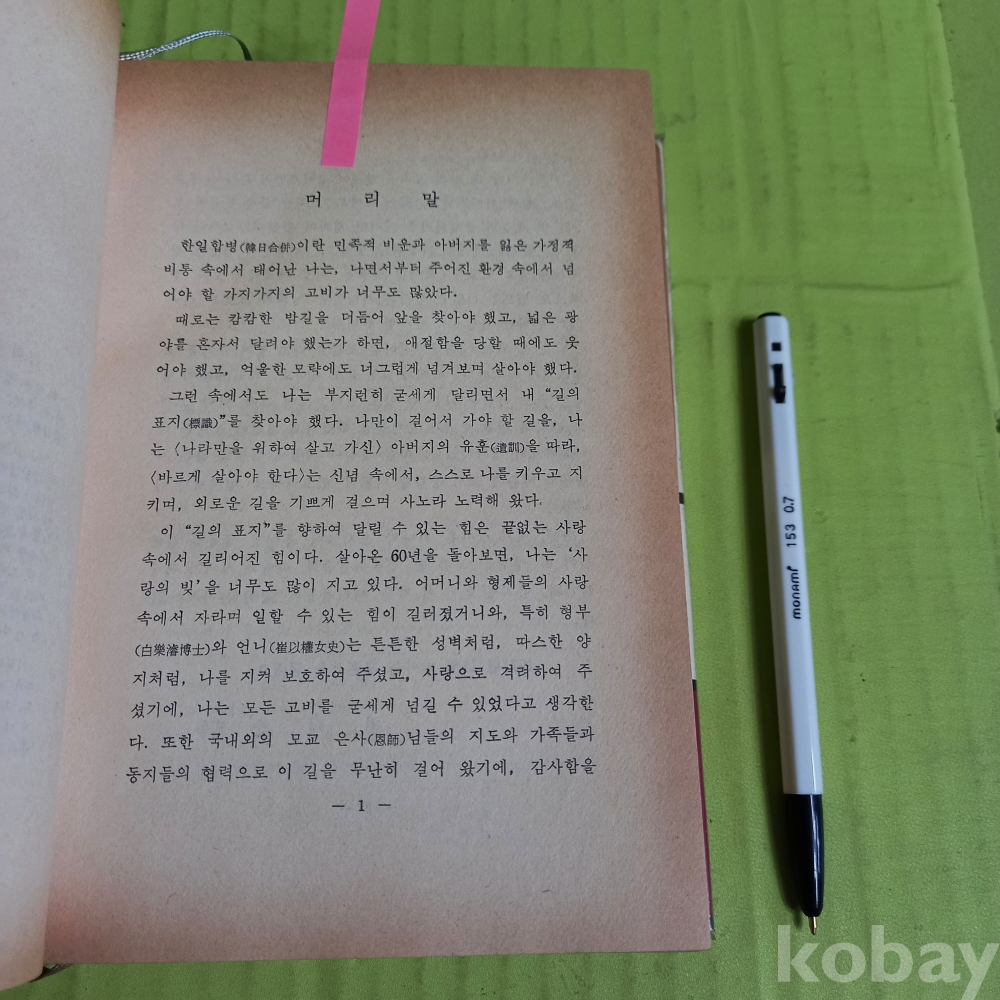 머 리 말
한일합병(韓日合併)이란 민족적 비운과 아버지를 잃은 가정적
비통 속에서 태어난 나는, 나면서부터 주어진 환경 속에서 넘
어야 할 가지가지의 고비가 너무도 많았다.
때로는 캄캄한 밤길을 더듬어 앞을 찾아야 했고, 넓은 광
야를 혼자서 달려야 했는가 하면, 애절함을 당할 때에도 웃
어야 했고, 억울한 모략에도 너그럽게 넘겨보며 살아야 했다.
그런 속에서도 나는 부지런히 굳세게 달리면서 내 “길의
표지(標識)”를 찾아야 했다. 나만이 걸어서 가야 할 길을, 나
는 〈나라만을 위하여 살고 가신〉 아버지의 유훈(遺訓)을 따라,
〈바르게 살아야 한다〉는 신념 속에서, 스스로 나를 키우고 지
키며, 외로운 길을 기쁘게 걸으며 사노라 노력해 왔다.
이 “길의 표지”를 향하여 달릴 수 있는 힘은 끝없는 사랑
속에서 길리어진 힘이다. 살아온 60년을 돌아보면, 나는 ‘사
랑의 빚’을 너무도 많이 지고 있다. 어머니와 형제들의 사랑
속에서 자라며 일할 수 있는 힘이 길러졌거니와, 특히 형부
(白樂濬博士)와 언니(崔以權女史)는 튼튼한 성벽처럼, 따스한 양
지처럼, 나를 지켜 보호하여 주셨고, 사랑으로 격려하여 주
셨기에, 나는 모든 고비를 굳세게 넘길 수 있었다고 생각한
다. 또한 국내외의 모교 은사(恩師)님들의 지도와 가족들과
동지들의 협력으로 이 길을 무난히 걸어 왔기에, 감사함을
— 1 —
monami 153 0.7
kobay